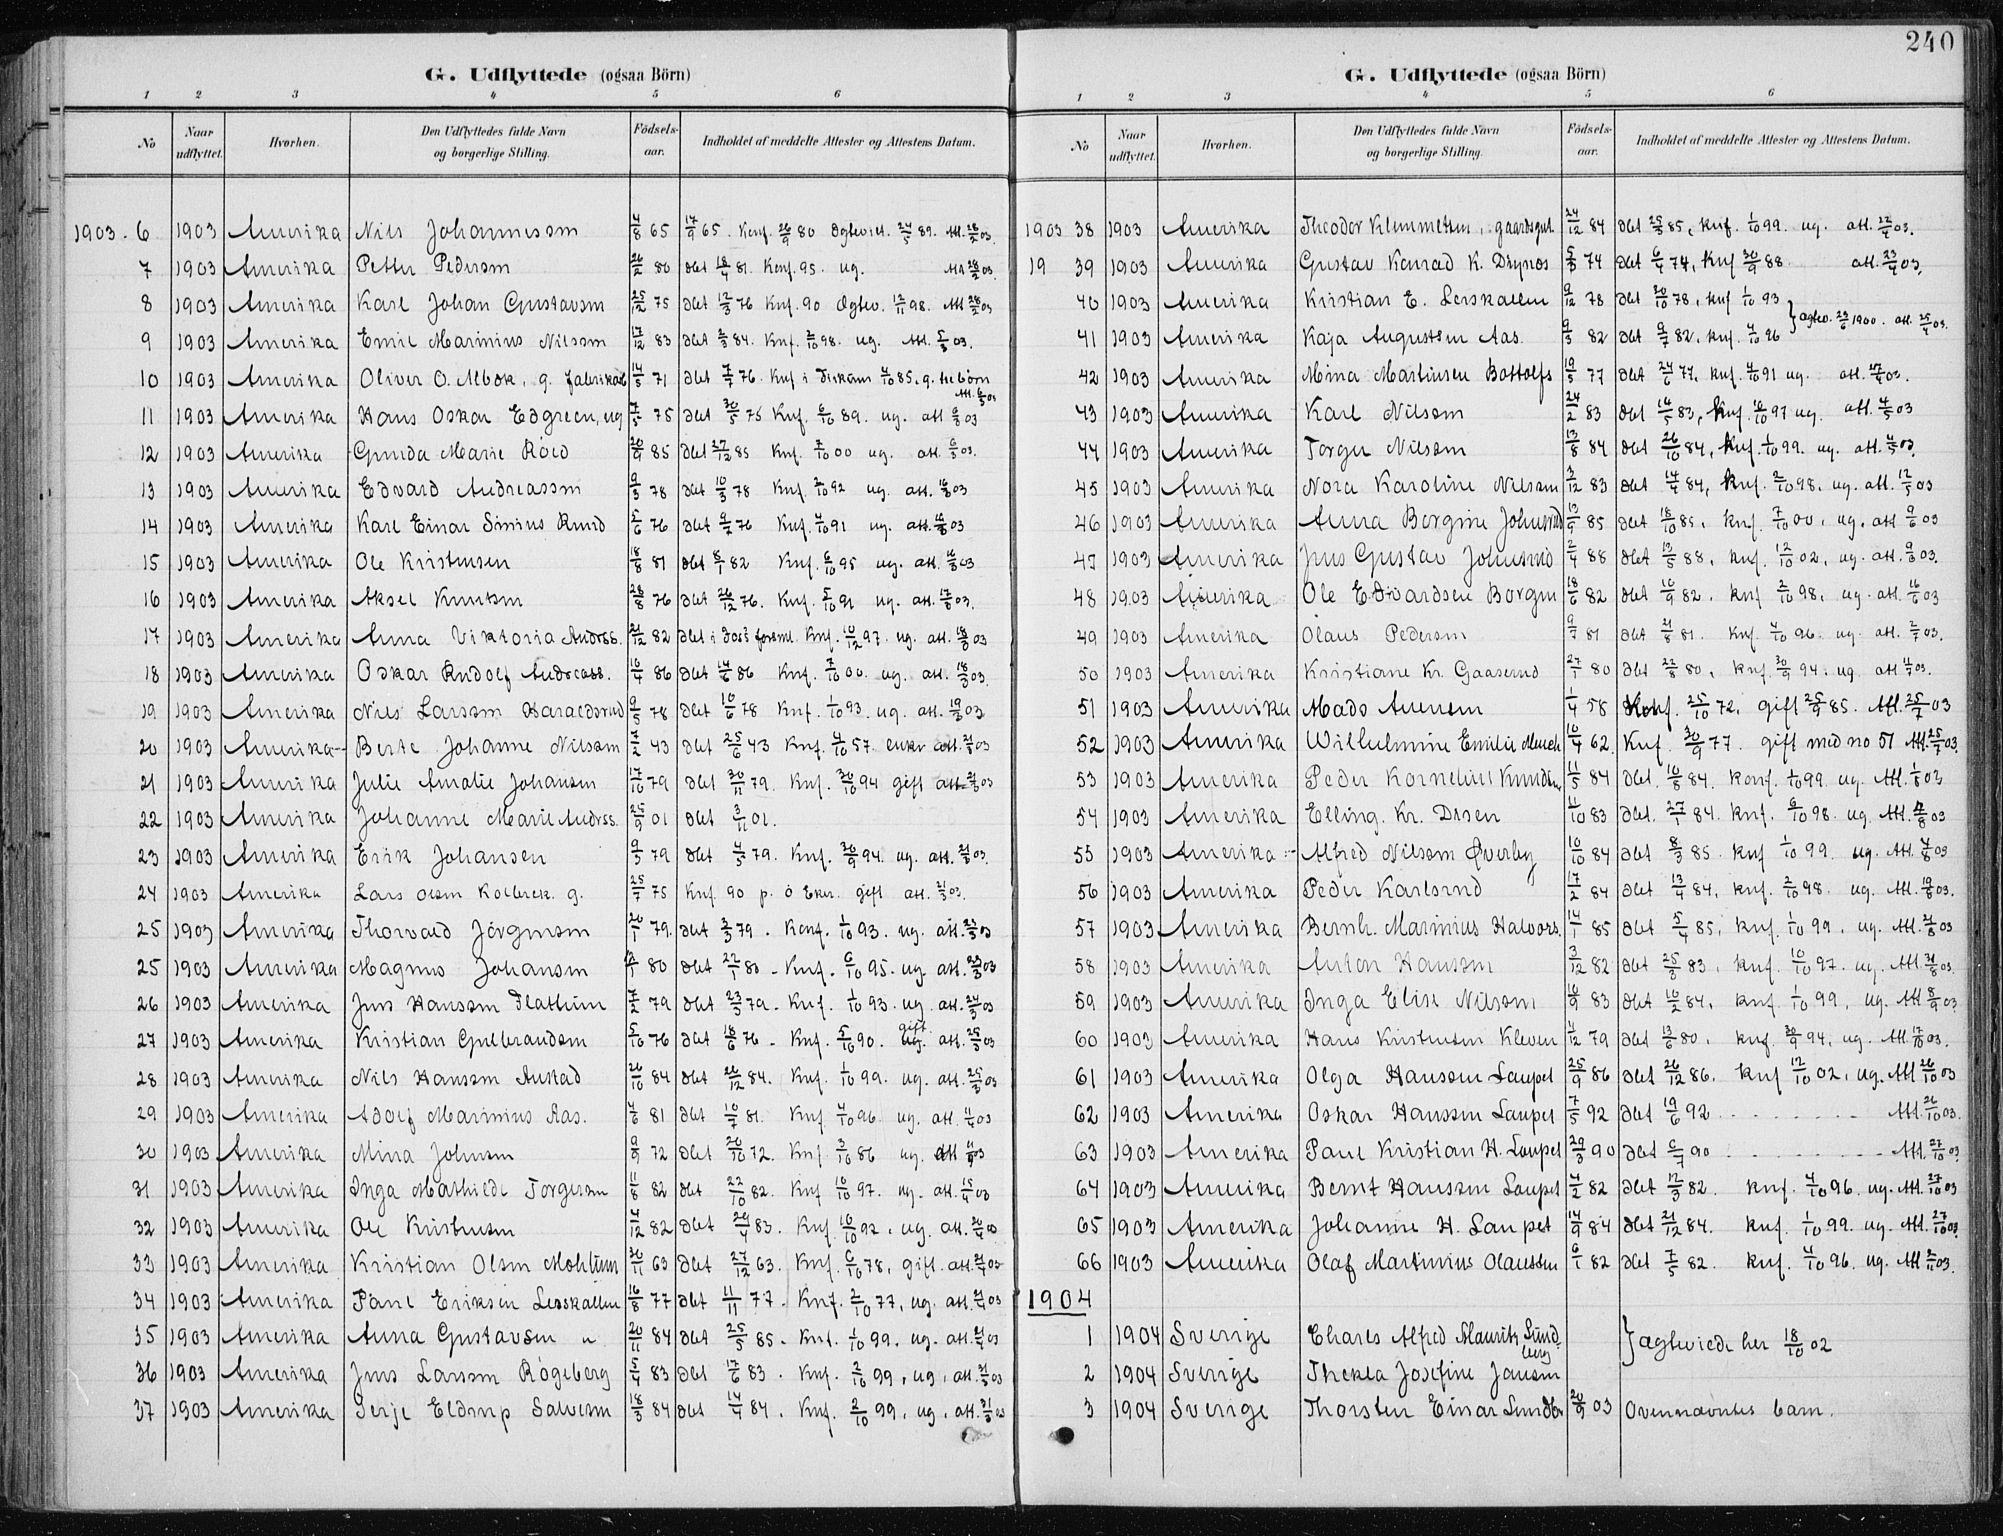 240
G. Udflyttede (ogsaa Börn)
1 2 3 4 5 6
No Naar udflyttet. Hvorhen. Den Udflyttedes fulde Navn og borgerlige Stilling. Födsels-aar. Indholdet af meddelte Attester og Attestens Datum.
1903. 6 1903 Amerika Nils Johannessen 4/8 65 17/9 65. Konf. 26/9 80 Ogtevied. 24/5 89. Att. 28/2 03.
7 1903 Amerika Petter Pedersen 26/2 80 döbt 18/4 81. Konf. 95. ug. Att 28/2 03.
8 1903 Amerika Karl Johan Gustavsen 25/12 75 döbt 12/3 76 Knf. 90 Ogtev. 12/11 98. Att 28/2 03
9 1903 Amerika Emil Marinius Nilsen 17/12 83 döbt 2/3 84. Knf. 2/10 98. ug. Att. 5/3 03.
10 1903 Amerika Oliver O. Mbok, g. fabrikarb 14/5 71 döbt 7/4 76. Knf i Fiskum 4/10 85. g. tre børn
Att. 6/3 03
11 1903 Amerika Hans Oskar Edgreen, ug 7/5 75 döbt 30/5 75 Knf. 6/10 89. ug. att 6/3 03
12 1903 Amerika Gunda Marie Röed 20/9 85 döbt 27/12 85 Knf. 7/10 00 ug. att. 6/3 03.
13 1903 Amerika Edvard Andreassen 9/3 78 döbt 10/3 78 Knf. 2/10 92 ug. att. 16/3 03
14 1903 Amerika Karl Einar Sinius Ruud 5/6 76 döbt 9/7 76 Knf. 4/10 91 ug. att. 16/3 03
15 1903 Amerika Ole Kristensen 18/8 81 döbt 8/1 82 Knf. 6/10 95 ug. att. 16/3 03
16 1903 Amerika Aksel Knutsen 28/8 76 döbt 26/12 76. Knf. 5/10 91 ug att. 17/3 03.
17 1903 Amerika Anna Viktoria Andrss. 21/12 82 döbt i doss forsml. Knf. 10/12 97. ug. att. 18/3 03
18 1903 Amerika Oskar Rudolf Andreass. 10/4 86 döbt 14/6 86 Knf. 7/10 00. ug. att. 18/3 03.
19 1903 Amerika Nils Larsen Haraldsrud 9/5 78 döbt 10/6 78 Knf. 1/10 93. ug. att. 19/3 03
20 1903 Amerika Berte Johanne Nilsen 7/2 43 döbt 25/6 43 Knf. 4/10 57. enke att. 21/3 03
21 1903 Amerika Julie Amalie Johansen 17/10 79 döbt 30/11 79. Knf. 30/10 94 gift att. 21/3 03
22 1903 Amerika Johanne Marie Andrss. 25/9 01 döbt 3/11 01.
23 1903 Amerika Erik Johansen 9/5 79 döbt 4/5 79. Knf. 30/9 94. ug. att. 21/3 03.
24 1903 Amerika Lars Olsen Kolbrek. g. 25/7 75 Knf. 90 p. ö Eker. gift att. 21/3 03.
25 1903 Amerika Thorvald Jörgensen 26/1 79. döbt 2/3 79. Konf. 1/10 93. ug. att. 23/3 03
25 1903 Amerika Magnus Johansen 12/1 80 döbt 22/1 80 - Knf. 6/10 95. ug att. 23/3 03
26 1903 Amerika Jens Hanssen Flathum 7/2 79 döbt 23/3 79. - Knf. 1/10 93. ug. att. 24/3 03
27 1903 Amerika Kristian Gulbrandsen 5/10 76 döbt 18/6 76 - Knf. 5/10 90. gift att. 25/3 03
28 1903 Amerika Nils Hanssen Austad 26/10 84 döbt 26/12 84. Knf. 1/10 99. ug. att. 25/3 03
29 1903 Amerika Adolf Marinius Aas. 4/6 81 döbt 10/7 81. Knf 4/10 96 ug. att. 11/4 03
30 1903 Amerika Mina Johnsen 9/9 72 döbt 20/10 72. Knf. 3/10 86 ug. att 11/4 03
31 1903 Amerika Inga Mathilde Torgersen 11/8 82 döbt 22/10 82. Knf 10/10 97. ug. att. 15/4 03
32 1903 Amerika Ole Kristensen 4/12 82 döbt 29/4 83. Knf. 16/10 92. ug. att. 20/4 03
33 1903 Amerika Kristian Olsen Mohlum 30/11 63 döbt 27/12 63. Knf. 6/10 78, gift. att. 21/4 03
34 1903 Amerika Paul Eriksen Lerskallen 16/8 77 döbt 11/11 77 - Knf. 2/10 77, ug. att. 21/4 03
35 1903 Amerika Anna Gustavsen " 20/11 84 döbt 25/5 85 - Knf. 1/10 99. ug. att. 21/4 03
36 1903 Amerika Jens Larsen Rögeberg 5/4 83 döbt 17/6 83. Knf. 2/10 99, ug, att. 21/3 03
37 1903 Amerika Terje Eldrup Salvesen 18/3 84 döbt 14/4 84. Knf. 2/10 99, ug, att. 31/3 03
G. Udflyttede (ogsaa Börn)
1 2 3 4 5 6
No Naar udflyttet. Hvorhen. Den Udflyttedes fulde Navn og borgerlige Stilling. Födsels-aar. Indholdet af meddelte Attester og Attestens Datum.
1903 38 1903 Amerika Theodor Klemmetsen, gaardsgut. 24/12 84 döbt 25/5 85, knf. 1/10 99. ug. att. 22/4 03.
19 39 1903 Amerika Gustav Konrad K. Dignæs 5/3 74 döbt 6/4 74, Knf 30/9 88 att. 23/4 03.
40 1903 Amerika Kristian E. Lerskallen 9/12 78 döbt 20/10 78, knf 1/10 93
} ægtev. 23/6 1900. att. 25/4 03.
41 1903 Amerika Kaja Augustsen Aas. 9/3 82 döbt 9/7 82. knf. 4/10 96
42 1903 Amerika Mina Martinsen Bottolfs 19/5 77 döbt 24/6 77, knf. 4/10 91 ug. att. 27/4 03.
43 1903 Amerika Karl Nilsen 24/2 83 döbt 14/5 83, knf. 10/10 97 ug. att. 4/5 03
44 1903 Amerika Torger Nilsen 13/8 84 döbt 26/10 84, Knf. 1/10 99. ug. att. 4/5 03.
45 1903 Amerika Nora Karoline Nilsen 3/12 83 döbt 14/4 84, Knf. 2/10 98. ug. att. 12/5 03
46 1903 Amerika Anna Borgine Johnsrud 13/9 85 döbt 18/10 85, knf. 7/10 00, ug. att 9/6 03
47 1903 Amerika Jens Gustav Johnsrud 2/4 88 döbt 13/5 88, knf. 12/10 02, ug. att. 9/6 03.
48 1903 Amerika Ole Edvardsen Borgen 18/6 82 döbt 10/9 82. knf 2/10 98, ug. att. 16/6 03
49 1903 Amerika Olaus Pedersen 9/7 81 döbt 21/8 81. Knf. 4/10 96. ug. att. 2/7 03.
50 1903 Amerika Kristiane Kr. Gaaserud 27/7 80 döbt 22/8 80, knf. 30/9 94. ug. att 11/7 03.
51 1903 Amerika Mads Arnesen 1/4 58 Konf. 25/10 72, gift 25/9 85. Att. 25/7 03
52 1903 Amerika Wilhelmine Emilie Munch 10/4 62. Knf. 30/9 77. gift med no 51 Att. 25/7 03.
53 1903 Amerika Peder Kornelius Knudsen 11/5 84 döbt. 10/8 84. Konf. 1/10 99. ug. Att. 1/8 03
54 1903 Amerika Elling. Kr. Disen 11/10 83 döbt. 27/1 84. Knf. 6/10 98. ug. Att. 4/8 03
55 1903 Amerika Alfred Nilsen Øverby 10/10 84 döbt 8/3 85. Knf 1/10 99. ug. Att. 4/8 03
56 1903 Amerika Peder Karlsrud 17/2 84 döbt 13/4 84, knf. 2/10 98. ug. Att. 10/8 03.
57 1903 Amerika Bernh. Marinius Halvors. 14/1 85 döbt 5/4 85, knf. 1/10 99, ug. Att. 21/8 03
58 1903 Amerika Anton Hanssen 3/12 82 döbt 25/3 83, knf. 10/10 97. ug. Att. 31/8 03.
59 1903 Amerika Inga Elise Nilsen 10/9 83 döbt 10/2 84, knf. 1/10 99, ug. Att 8/9 03.
60 1903 Amerika Hans Kristensen Kleven 4/12 79 döbt 13/6 80. knf. 30/9 94, ug. Att. 17/10 03.
61 1903 Amerika Olga Hanssen Laupet 25/9 86 döbt 26/12 86. Knf 12/10 02, ug. Att 26/10 03
62 1903 Amerika Oskar Hanssen Laupet 7/5 92 döbt 19/6 92 - - - Att. 26/10 03.
63 1903 Amerika Paul Kristian H. Laupet 29/3 90 döbt 6/7 90 - - - Att. 27/10 03
64 1903 Amerika Bernt Hanssen Laupet 4/2 82 döbt 12/3 82. knf. 4/10 96. ug. Att. 27/10 03
65 1903 Amerika Johanne H. Laupet 14/9 84 döbt 21/12 84. Knf. 1/10 99. ug. Att. 27/10 03.
66 1903 Amerika Olaf Martinius Olaussen 6/1 82 döbt 7/5 82. Knf. 4/10 96. ug. Att 2/11 03.
1904
1 1904 Sverige Charles Alfred Mauritz Lund-
berg
} ægteviede her 18/10 02
2 1904 Sverige Thekla Josefine Jansen
3 1904 Sverige Thorsten Einar Lundbr 20/9 03 Ovennævntes barn.